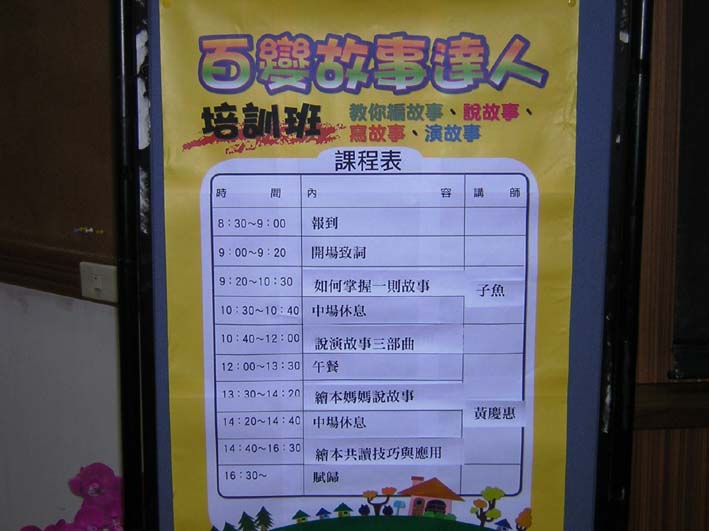 百變故事達人
培訓班 教你編故事、說故事、
寫故事、演故事
課程表
時 間 內 容 講 師
8：30～9：00 報到
9：00～9：20 開場致詞
9：20～10：30 如何掌握一則故事 子魚
10：30～10：40 中場休息
10：40～12：00 說演故事三部曲
12：00～13：30 午餐
13：30～14：20 繪本媽媽說故事 黃慶惠
14：20～14：40 中場休息
14：40～16：30 繪本共讀技巧與應用
16：30～ 賦歸